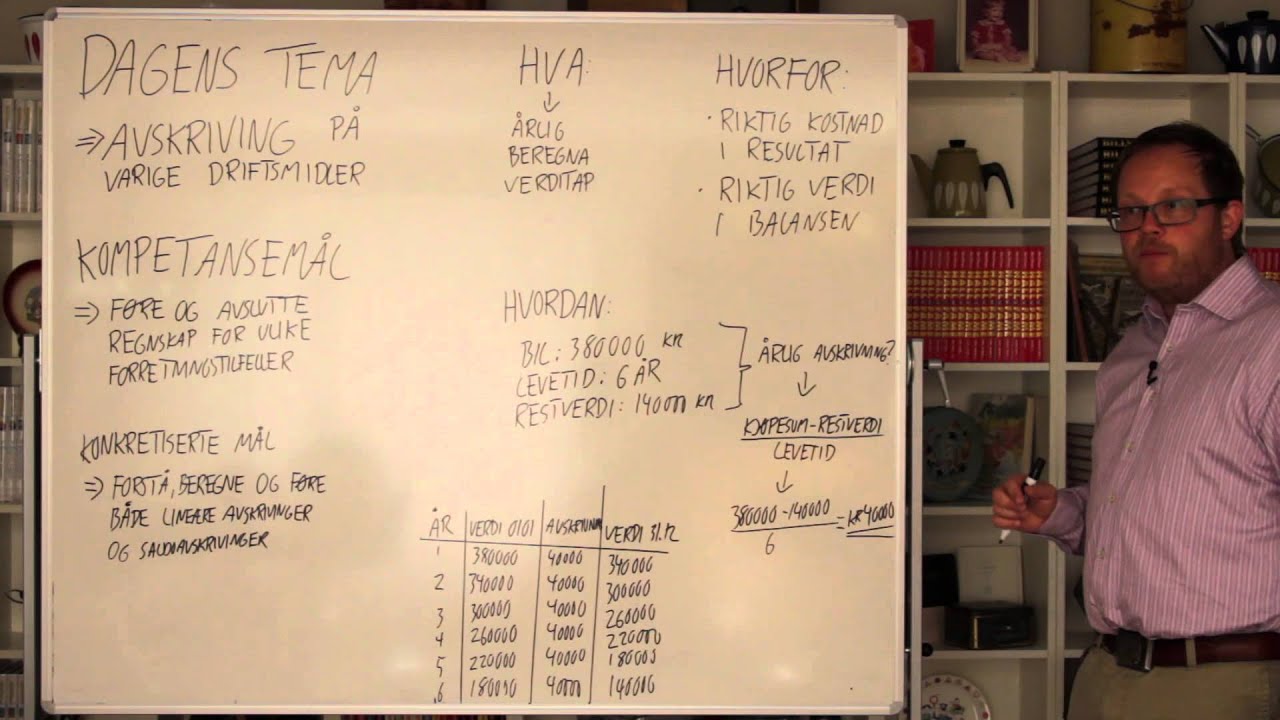 DAGENS TEMA
⇒ AVSKRIVING PÅ
VARIGE DRIFTSMIDLER
KOMPETANSEMÅL
⇒ FØRE OG AVSLUTTE
REGNSKAP FOR ULIKE
FORRETNINGSTILFELLER
KONKRETISERTE MÅL
⇒ FORSTÅ, BEREGNE OG FØRE
BÅDE LINEÆRE AVSKRIVINGER
OG SALDOAVSKRIVINGER
HVA:
↓
ÅRLIG
BEREGNA
VERDITAP
HVORFOR:
· RIKTIG KOSTNAD
I RESULTAT
· RIKTIG VERDI
I BALANSEN
HVORDAN:
BIL: 380000 KR
LEVETID: 6 ÅR
RESTVERDI: 140000 KR
ÅRLIG AVSKRIVNING?
↓
KJØPESUM-RESTVERDI
LEVETID
↓
380000-140000 = KR 40000
6
ÅR VERDI 0101 AVSKRIVNING VERDI 31.12
1 380000 40000 340000
2 340000 40000 300000
3 300000 40000 260000
4 260000 40000 220000
5 220000 40000 180000
6 180000 40000 140000